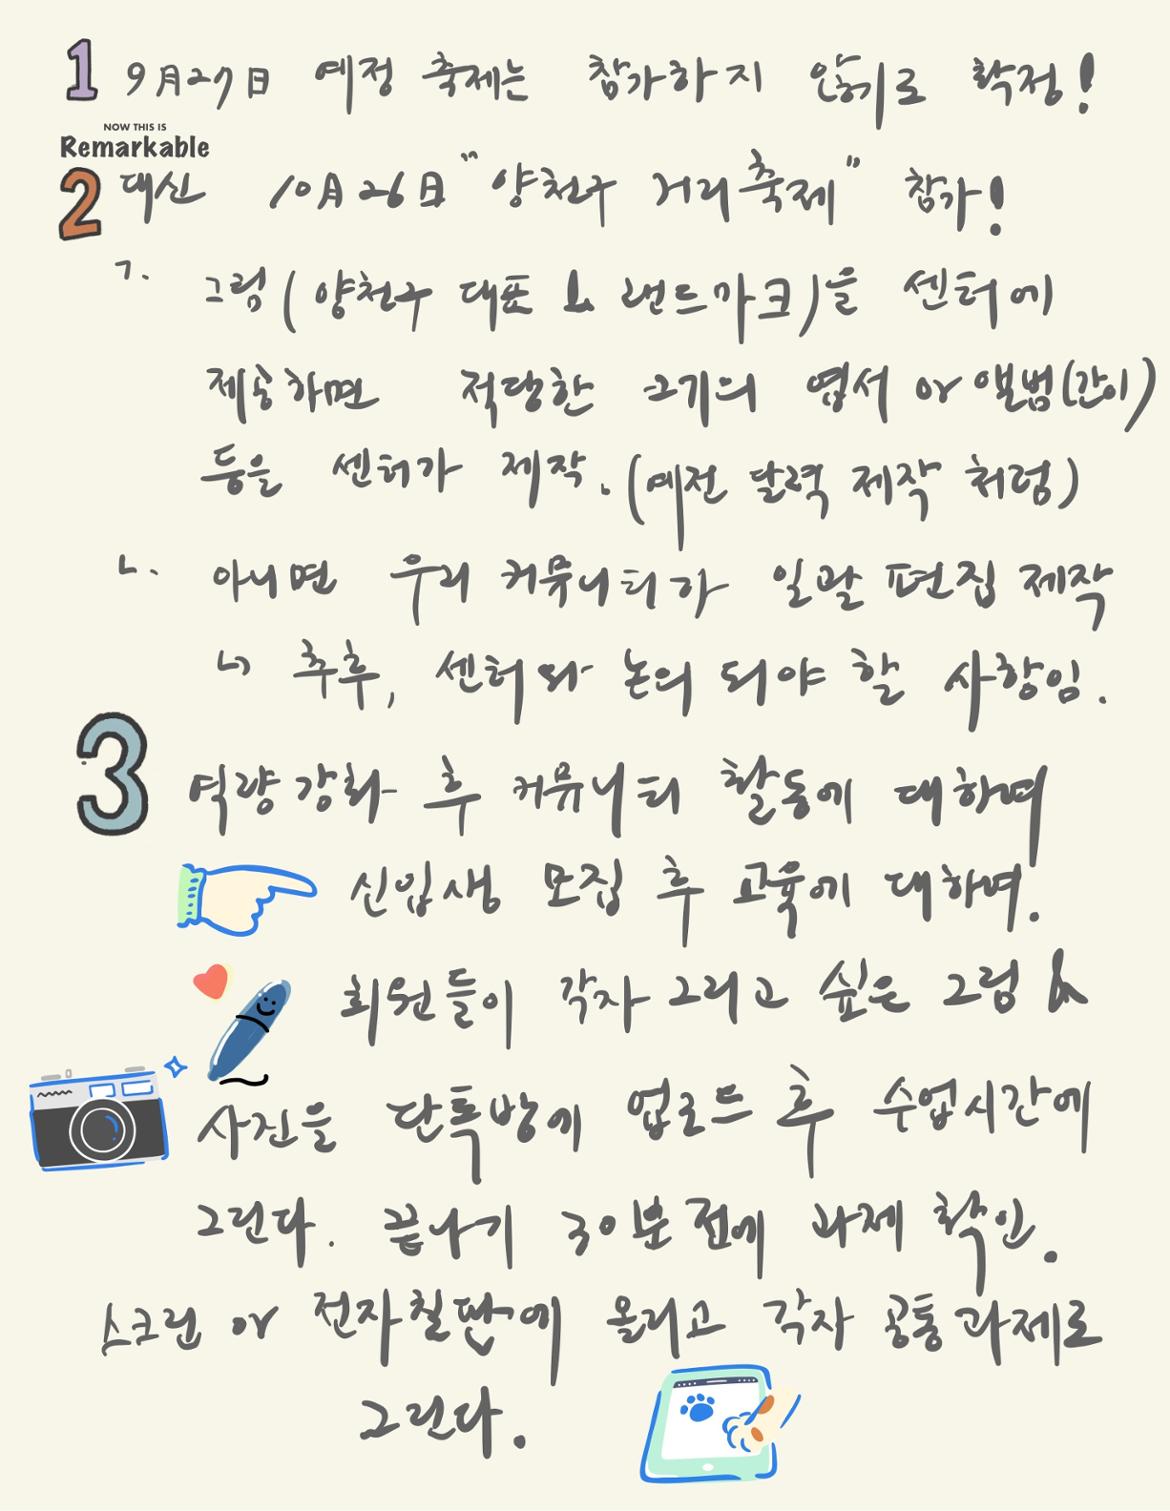 1 9月27日 예정 축제는 참가하지 않기로 확정!
NOW THIS IS
Remarkable
2 대신 10月26日 "양천구 거리축제" 참가!
ㄱ. 그림(양천구 대표 & 랜드마크)을 센터에
제공하면 적당한 크기의 엽서 or 앨범(간이)
등을 센터가 제작. (예전 달력 제작 처럼)
ㄴ. 아니면 우리 커뮤니티가 일괄 편집 제작
↳ 추후, 센터와 논의 되야 할 사항임.
3 역량강화 후 커뮤니티 활동에 대하여
신입생 모집 후 교육에 대하여.
회원들이 각자 그리고 싶은 그림 &
사진을 단톡방에 업로드 후 수업시간에
그린다. 끝나기 30분 전에 과제 확인.
스크린 or 전자칠판에 올리고 각자 공통과제로
그린다.